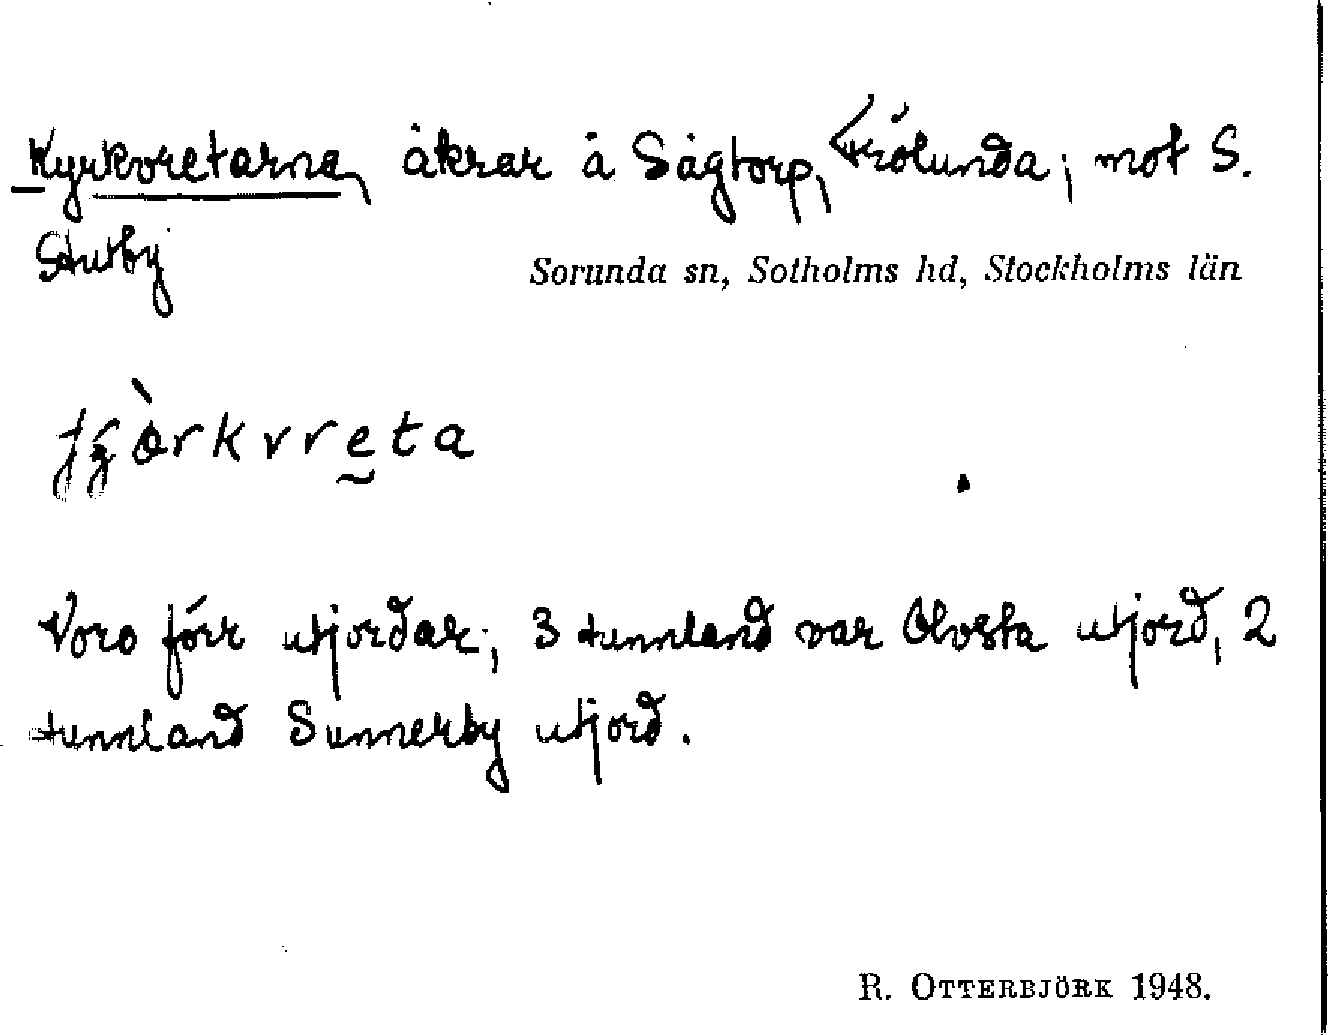 Kyrkvretarna, åkrar å Sågtorp, Frölunda; mot S.
Stutby
Sorunda sn, Sotholms hd, Stockholms län
Voro förr utjordar; 3 tunnland var Olvsta utjord, 2
tunnland Sunnerby utjord.
R. OTTERBJÖRK 1948.